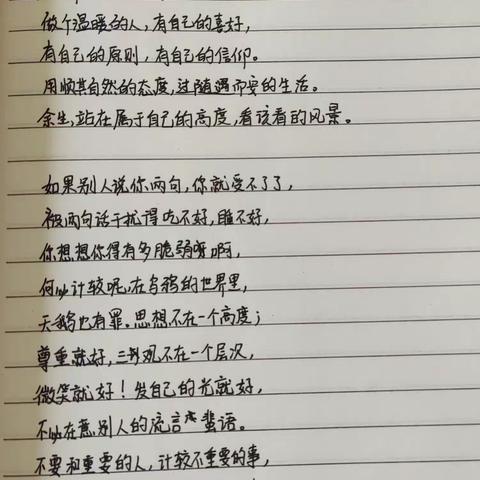 做个温暖的人，有自己的喜好，
有自己的原则，有自己的信仰。
用顺其自然的态度，过随遇而安的生活。
余生，站在属于自己的高度，看该看的风景。
如果别人说你两句，你就受不了了，
被两句话干扰得吃不好，睡不好，
你想想你得有多脆弱呀啊，
何必计较呢，在乌鸦的世界里，
天鹅也有罪。思想不在一个高度；
尊重就好，三观不在一个层次，
微笑就好！发自己的光就好，
不必在意别人的流言蜚语。
不要和重要的人，计较不重要的事，